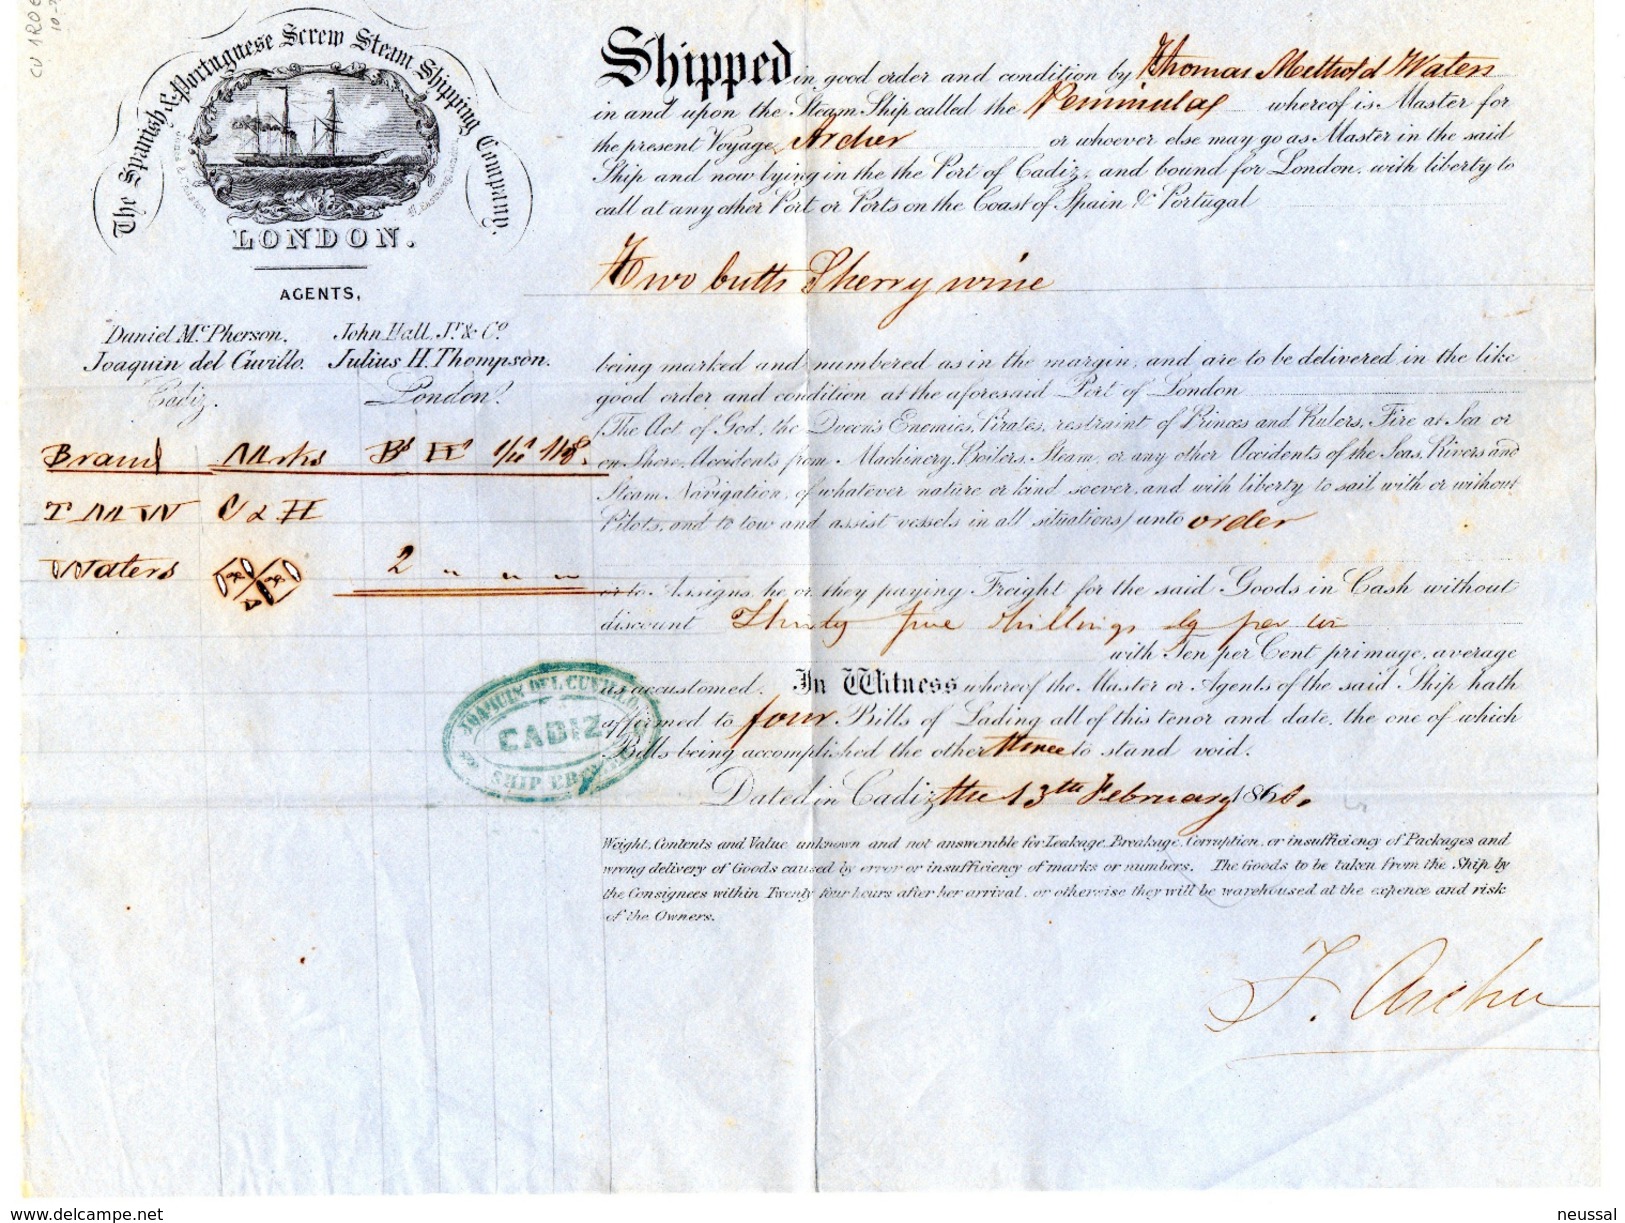 The Spanish & Portuguese Screw Steam Shipping Company.
LONDON.
AGENTS,
Daniel McPherson. John Hall Jr & Co
Joaquin del Cuvillo. Julius H. Thompson.
Cadiz. London
Brand Mrks Bs
T M W C & H
Waters 2 " " "
Shipped in good order and condition by Thomas Methold Waters
in and upon the Steam Ship called the Peninsular whereof is Master for
the present Voyage Archer or whoever else may go as Master in the said
Ship and now lying in the the Port of Cadiz, and bound for London, with liberty to
call at any other Port or Ports on the Coast of Spain & Portugal
Two butts Sherry wine
being marked and numbered as in the margin, and are to be delivered in the like
good order and condition at the aforesaid Port of London
(The Act of God, the Queen's Enemies, Pirates, restraint of Princes and Rulers, Fire at Sea or
on Shore, Accidents from Machinery, Boilers, Steam, or any other Accidents of the Seas, Rivers and
Steam Navigation, of whatever nature or kind soever, and with liberty to sail with or without
Pilots, and to tow and assist vessels in all situations) unto order
or to Assigns, he or they paying Freight for the said Goods in Cash without
discount Thirty five shillings per
with Ten per Cent primage, average
as accustomed. In Witness whereof the Master or Agents of the said Ship hath
affirmed to four Bills of Lading all of this tenor and date, the one of which
Bills being accomplished the other three to stand void.
Dated in Cadiz the 13th February 1866.
JOAQUIN DEL CUVILLO
CADIZ
SHIP BROKER
Weight, Contents and Value unknown and not answerable for Leakage, Breakage, Corruption, or insufficiency of Packages and
wrong delivery of Goods caused by error or insufficiency of marks or numbers. The Goods to be taken from the Ship by
the Consignees within Twenty four hours after her arrival, or otherwise they will be warehoused at the expence and risk
of the Owners.
F. Archer
www.delcampe.net neussal